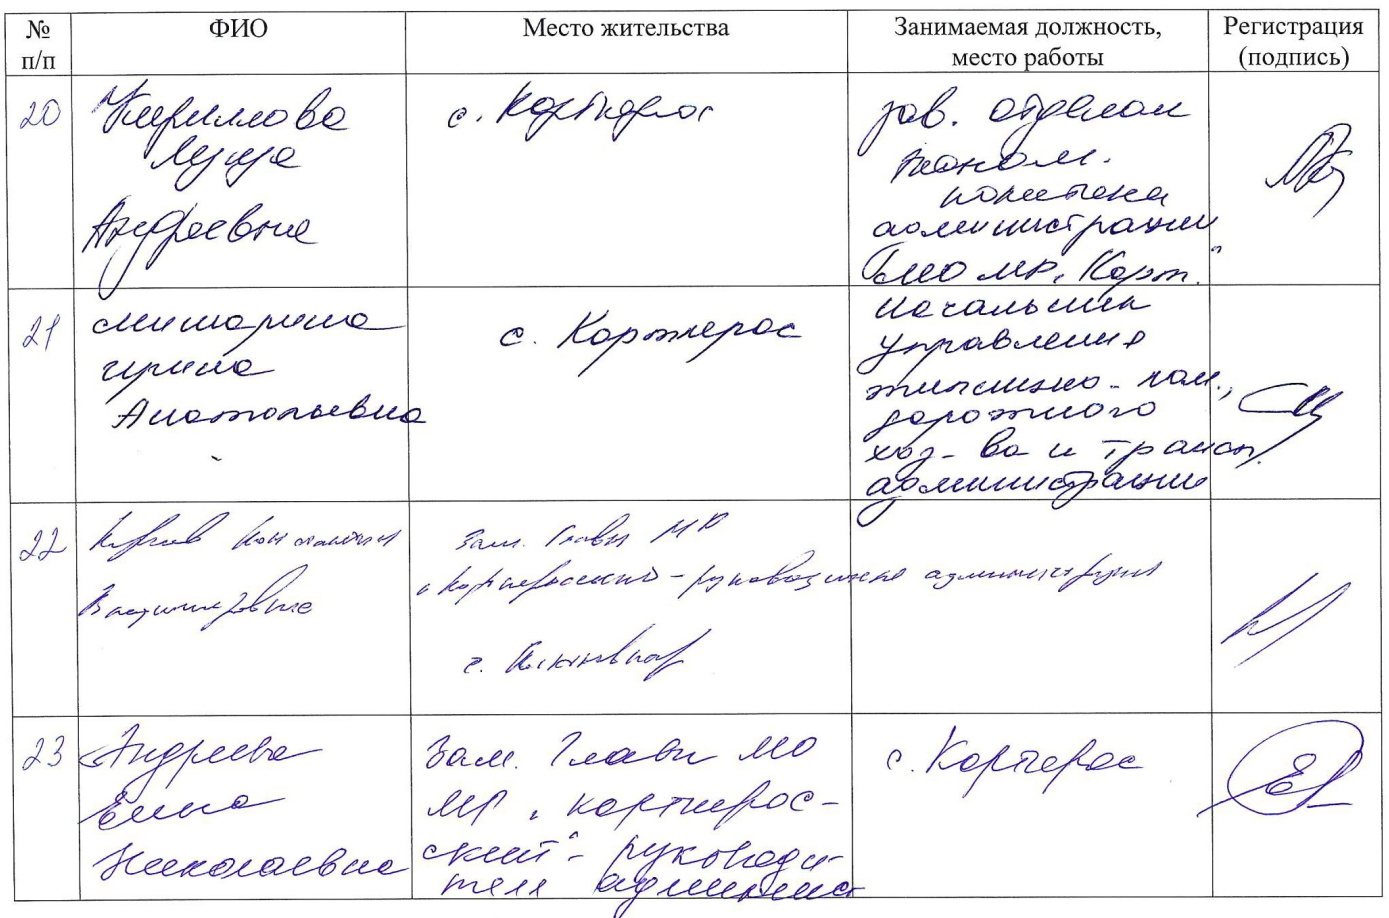 № п/п
ФИО
Место жительства
Занимаемая должность, место работы
Регистрация (подпись)
20
Кириллова
Луиза
Андреевна
с. Корткерос
зав. отделом
эконом.
политики
администрации
МО МР "Корт."
21
Мишарина
Ирина
Анатольевна
с. Корткерос
Начальник
управления
жилищно-ком.,
дорожного
хоз-ва и трансп.
администрации
22
Константин
Владимирович
Зам. Главы МР
"Корткеросский" - руководителя администрации
г. Сыктывкар
23
Андреева
Елена
Николаевна
Зам. Главы МО
МР "Корткерос-
ский" - руководи-
теля админис
с. Корткерос